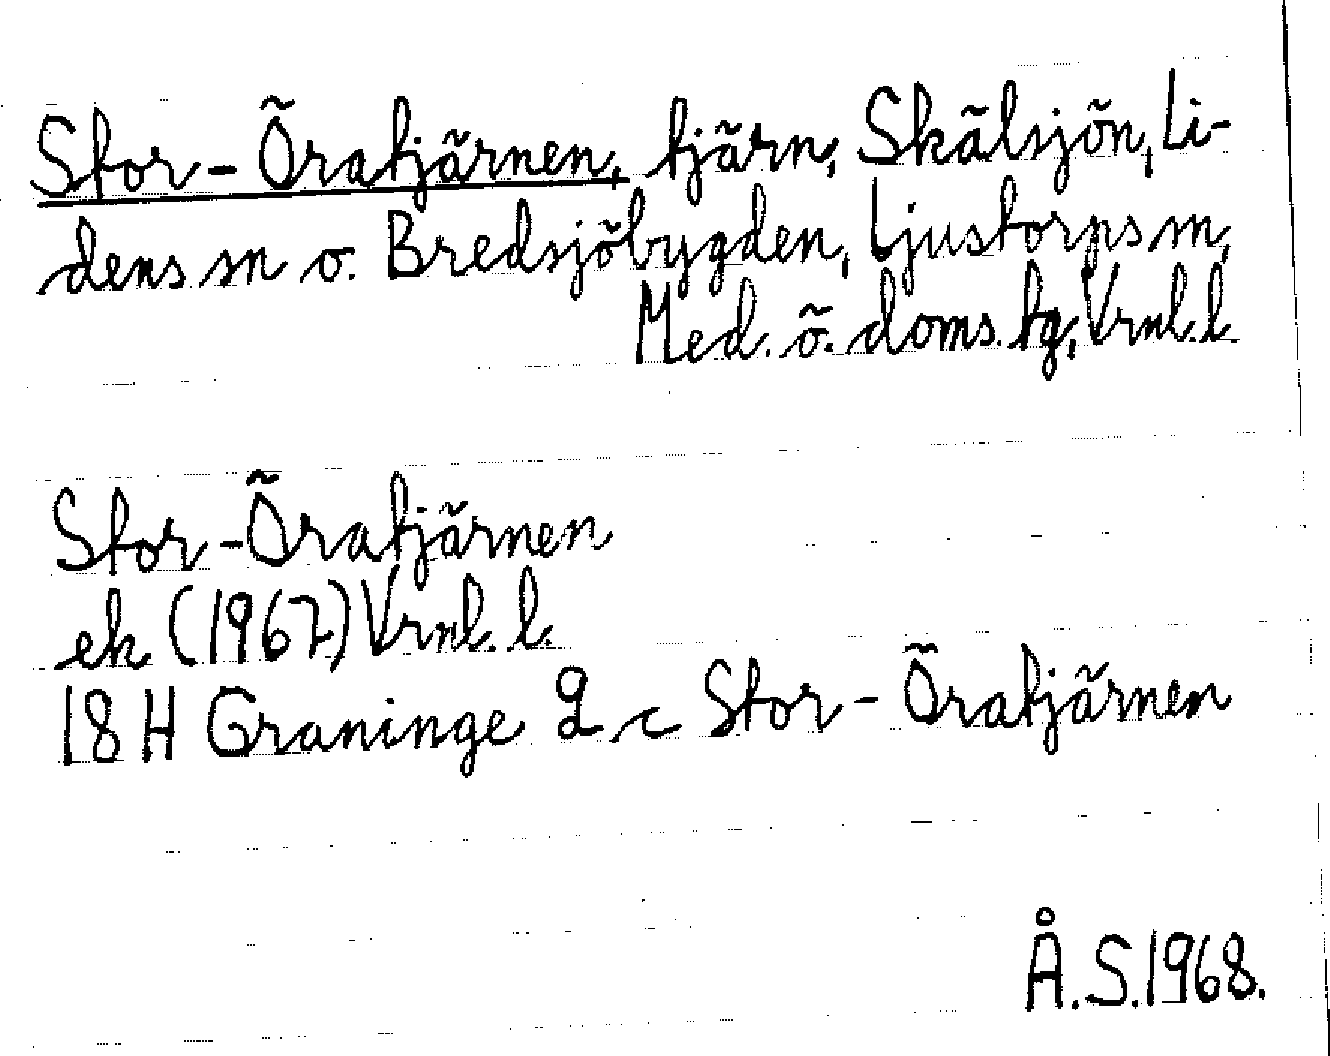 Stor-Öratjärnen, tjärn, Skälsjön, Li-
dens sn o. Bredsjöbygden, Ljustorps sn,
Med. ö. doms. tg, Vrnl. l.
Stor-Öratjärnen
ek (1967) Vrnl. l.
18 H Graninge 2 c Stor-Öratjärnen
Å.S.1968.